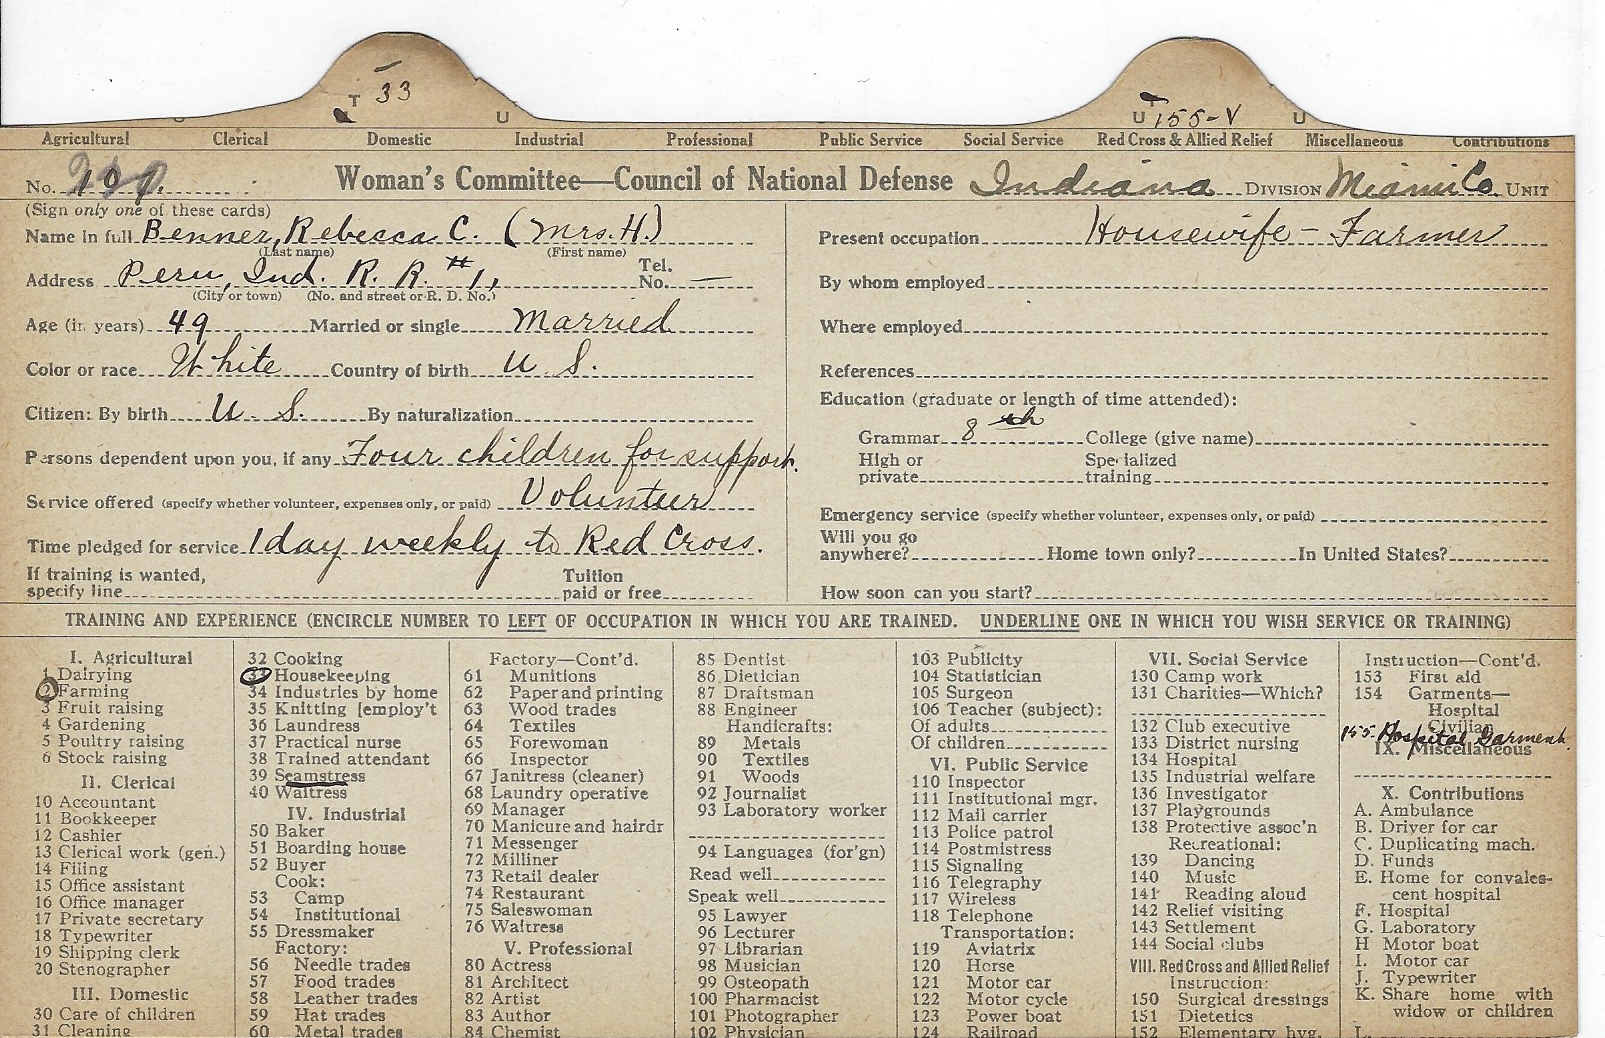 T 33
U
U T 155-V U
Agricultural Clerical Domestic Industrial Professional Public Service Social Service Red Cross & Allied Relief Miscellaneous Contributions
No. Woman's Committee—Council of National Defense Indiana DIVISION Miami Co. UNIT
(Sign only one of these cards)
Name in full Benner, Rebecca C. (Mrs. H.)
(Last name) (First name)
Address Peru, Ind. R. R. #1, Tel. No. —
(City or town) (No. and street or R. D. No.)
Age (in years) 49 Married or single Married
Color or race White Country of birth U. S.
Citizen: By birth U. S. By naturalization
Persons dependent upon you, if any Four children for support.
Service offered (specify whether volunteer, expenses only, or paid) Volunteer
Time pledged for service 1 day weekly to Red Cross.
If training is wanted, specify line Tuition paid or free
Present occupation Housewife - Farmer
By whom employed
Where employed
References
Education (graduate or length of time attended):
Grammar 8th College (give name)
High or private Specialized training
Emergency service (specify whether volunteer, expenses only, or paid)
Will you go anywhere? Home town only? In United States?
How soon can you start?
TRAINING AND EXPERIENCE (ENCIRCLE NUMBER TO LEFT OF OCCUPATION IN WHICH YOU ARE TRAINED. UNDERLINE ONE IN WHICH YOU WISH SERVICE OR TRAINING)
I. Agricultural
1 Dairying
2 Farming
3 Fruit raising
4 Gardening
5 Poultry raising
6 Stock raising
II. Clerical
10 Accountant
11 Bookkeeper
12 Cashier
13 Clerical work (gen.)
14 Filing
15 Office assistant
16 Office manager
17 Private secretary
18 Typewriter
19 Shipping clerk
20 Stenographer
III. Domestic
30 Care of children
31 Cleaning
32 Cooking
33 Housekeeping
34 Industries by home
35 Knitting [employ't
36 Laundress
37 Practical nurse
38 Trained attendant
39 Seamstress
40 Waitress
IV. Industrial
50 Baker
51 Boarding house
52 Buyer
Cook:
53 Camp
54 Institutional
55 Dressmaker
Factory:
56 Needle trades
57 Food trades
58 Leather trades
59 Hat trades
60 Metal trades
Factory—Cont'd.
61 Munitions
62 Paper and printing
63 Wood trades
64 Textiles
65 Forewoman
66 Inspector
67 Janitress (cleaner)
68 Laundry operative
69 Manager
70 Manicure and hairdr
71 Messenger
72 Milliner
73 Retail dealer
74 Restaurant
75 Saleswoman
76 Waitress
V. Professional
80 Actress
81 Architect
82 Artist
83 Author
84 Chemist
85 Dentist
86 Dietician
87 Draftsman
88 Engineer
Handicrafts:
89 Metals
90 Textiles
91 Woods
92 Journalist
93 Laboratory worker
94 Languages (for'gn)
Read well
Speak well
95 Lawyer
96 Lecturer
97 Librarian
98 Musician
99 Osteopath
100 Pharmacist
101 Photographer
102 Physician
103 Publicity
104 Statistician
105 Surgeon
106 Teacher (subject):
Of adults
Of children
VI. Public Service
110 Inspector
111 Institutional mgr.
112 Mail carrier
113 Police patrol
114 Postmistress
115 Signaling
116 Telegraphy
117 Wireless
118 Telephone
Transportation:
119 Aviatrix
120 Horse
121 Motor car
122 Motor cycle
123 Power boat
124 Railroad
VII. Social Service
130 Camp work
131 Charities—Which?
132 Club executive
133 District nursing
134 Hospital
135 Industrial welfare
136 Investigator
137 Playgrounds
138 Protective assoc'n
Recreational:
139 Dancing
140 Music
141 Reading aloud
142 Relief visiting
143 Settlement
144 Social clubs
VIII. Red Cross and Allied Relief
Instruction:
150 Surgical dressings
151 Dietetics
152 Elementary hyg.
Instruction—Cont'd.
153 First aid
154 Garments—
Hospital
Civilian
155. Hospital Garment.
IX. Miscellaneous
X. Contributions
A. Ambulance
B. Driver for car
C. Duplicating mach.
D. Funds
E. Home for convalescent hospital
F. Hospital
G. Laboratory
H Motor boat
I. Motor car
J. Typewriter
K. Share home with widow or children
L.